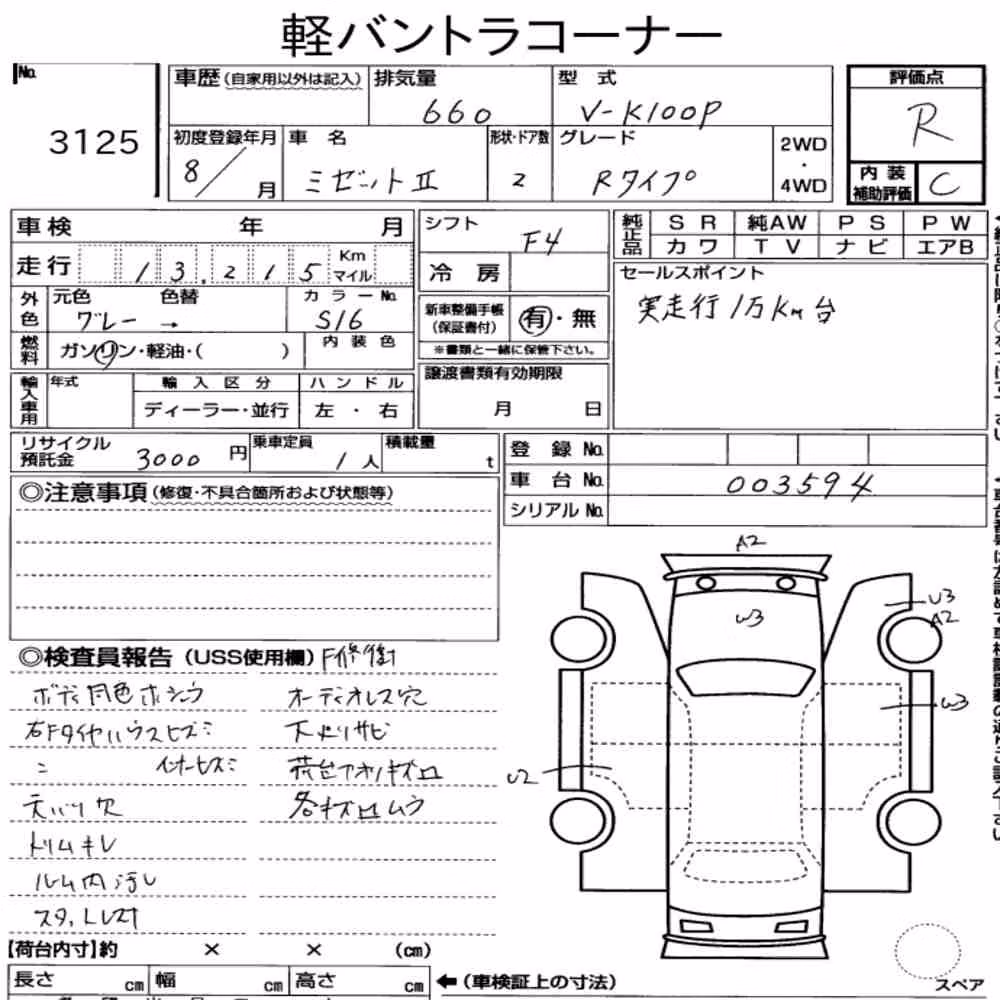 軽バントラコーナー
No.
3125
車歴(自家用以外は記入)
排気量
660
型 式
V-K100P
評価点
R
初度登録年月
8/ 月
車 名
ミゼットII
形状・ドア数
2
グレード
Rタイプ
2WD
・
4WD
内 装
補助評価
C
車検 年 月
走行 13.215 Km
マイル
シフト
F4
冷 房
純正品
SR 純AW PS PW
カワ TV ナビ エアB
外色
元色 色替
グレー →
カラーNo.
S16
新車整備手帳
(保証書付)
有・無
※書類と一緒に保管下さい。
セールスポイント
実走行1万Km台
燃料
ガソリン・軽油・( )
内装色
輸入車用
年式
輸入区分
ディーラー・並行
ハンドル
左・右
譲渡書類有効期限
月 日
リサイクル
預託金 3000 円
乗車定員
1人
積載量
t
登 録 No.
車 台 No. 003594
シリアル No.
◎注意事項(修復・不具合箇所および状態等)
A2
U3
A2
W3
W3
U2
◎検査員報告(USS使用欄)
ボディ同色ホシュウ
オーディオレス穴
右Fタイヤハウスヒズミ
下廻りサビ
〃 インナーヒズミ
荷台アオリキズ凹
天バリ欠
各キズ凹ムラ
トリムキレ
ルーム内汚レ
【荷台内寸】約 × × (cm)
長さ cm 幅 cm 高さ cm
←(車検証上の寸法)
スペア